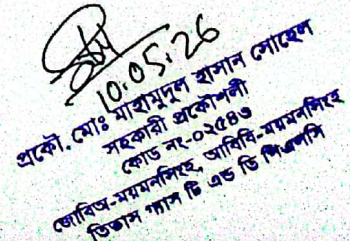 10.05.26
প্রকৌ. মোঃ মাহামুদুল হাসান সোহেল
সহকারী প্রকৌশলী
কোড নং-০২৫৪৬
জোবিঅ-ময়মনসিংহ, আবিবি-ময়মনসিংহ
তিতাস গ্যাস টি এন্ড ডি পিএলসি